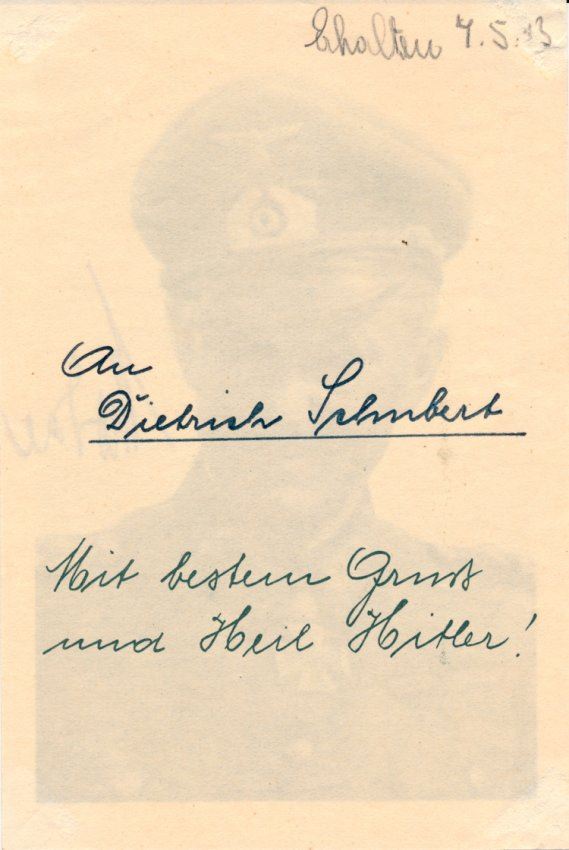 Erhalten 7.5.43
An
Dietrich Schubert
Mit bestem Gruß
und Heil Hitler!